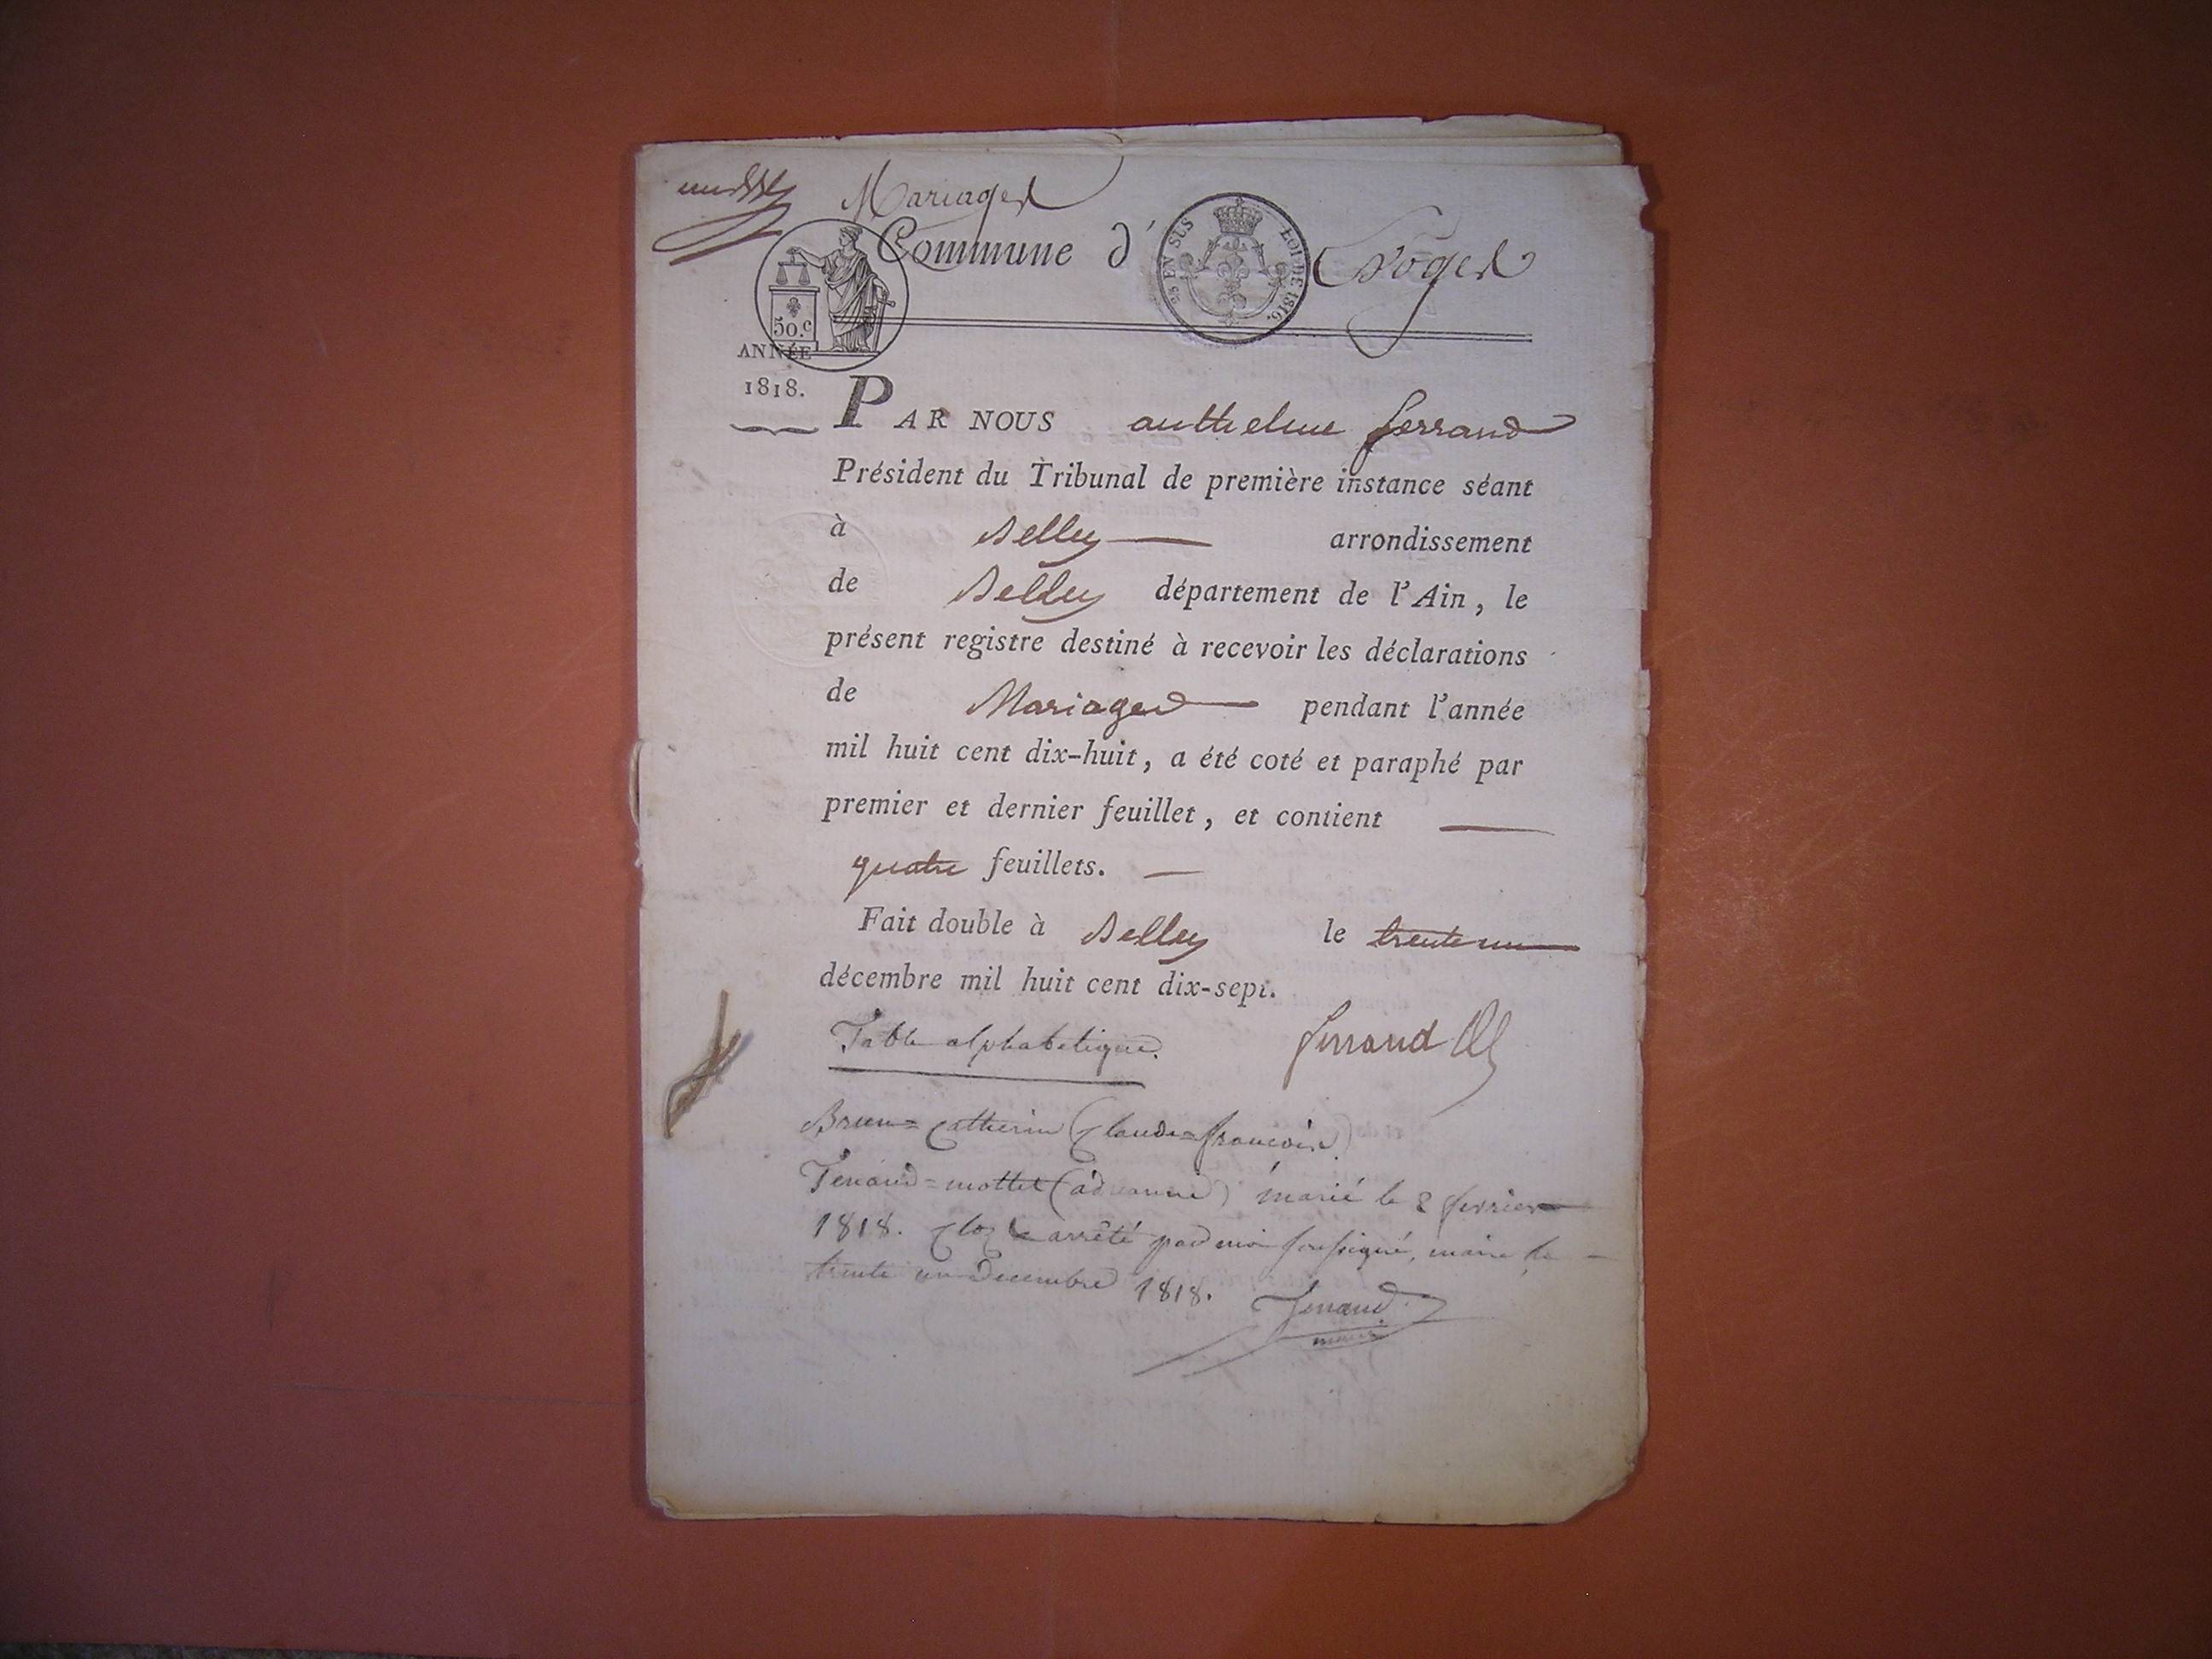 Mariages
Commune d'Oges
25 EN SUS LOI DE 1816.
50.c
ANNÉE
1818.
PAR NOUS anthelme ferrand
Président du Tribunal de première instance séant
à Belley arrondissement
de Belley département de l'Ain, le
présent registre destiné à recevoir les déclarations
de Mariages pendant l'année
mil huit cent dix-huit, a été coté et paraphé par
premier et dernier feuillet, et contient
quatre feuillets.
Fait double à Belley le trente un
décembre mil huit cent dix-sept.
Table alphabetique.
ferrand
Brun=Catherin (Claude=françois)
Tenand=mottet (adrianne) marié le 2 fevrier
1818. Clos & arrêté par moi soussigné, maire le
trente un Decembre 1818.
Tenand
maire